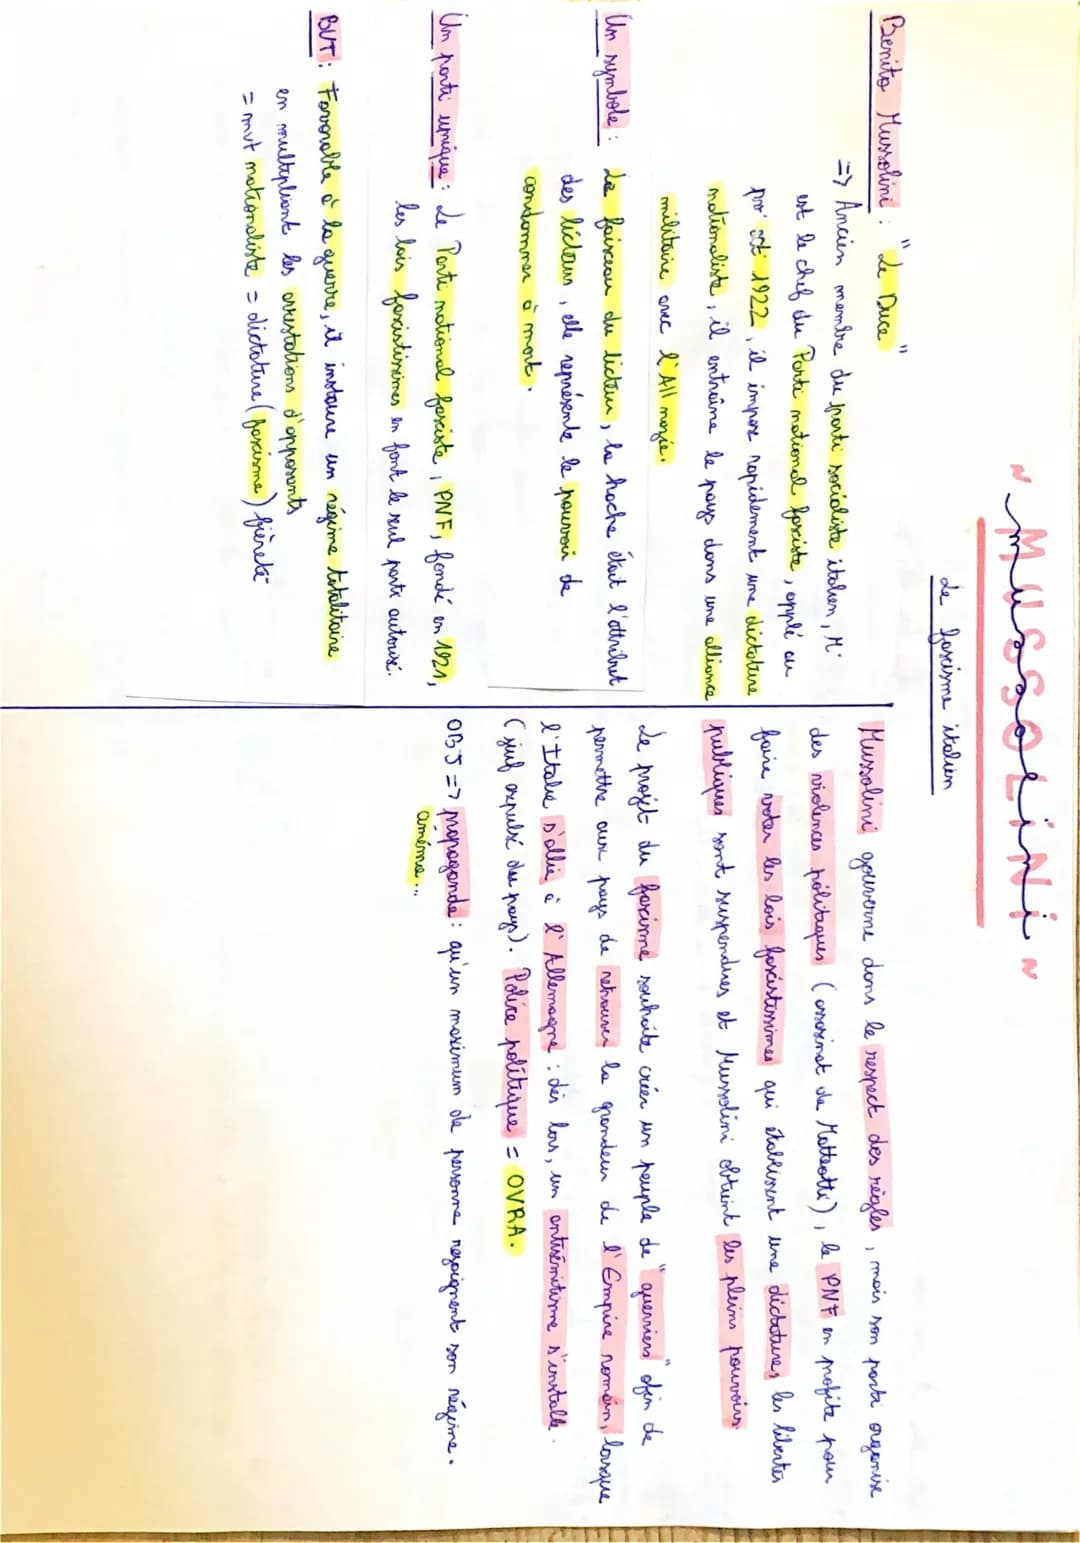 ~ MUSSOLiNi ~
mussolini
Le fascisme italien
Benito Mussolini : "Le Duce"
=> Ancien membre du parti socialiste italien, M.
est le chef du Parti national fasciste, applé au
pvr oct 1922, il impose rapidement une dictature
nationaliste, il entraîne le pays dans une alliance
militaire avec l'All nazie.
Un symbole : Le faisceau du licteur, la hache était l'attribut
des licteurs, elle représente le pouvoir de
condamner à mort.
Un parti unique : Le Parti national fasciste, PNF, fondé en 1921,
les lois fascistissimes en font le seul parti autorisé.
BUT : Favorable à la guerre, il instaure un régime totalitaire
en multipliant les arrestations d'opposants
= mvt nationaliste = dictature (fascisme) fièreté
Mussolini gouverne dans le respect des règles, mais son parti organise
des violences politiques (assasinat de Matteotti), le PNF en profite pour
faire voter les lois fascistissimes qui établissent une dictature, les libertés
publiques sont suspendues et Mussolini obtient les pleins pouvoirs.
Le projet du fascisme souhaite créer un peuple de "guerriers" afin de
permettre aux pays de retrouver la grandeur de l'Empire romain, lorsque
l'Italie s'allie à l'Allemagne : dès lors, un antisémitisme s'installe.
(juif expulsé des pays). Police politique = OVRA.
OBJ => propagande : qu'un maximum de personne rejoignent son régime.
cinéma...